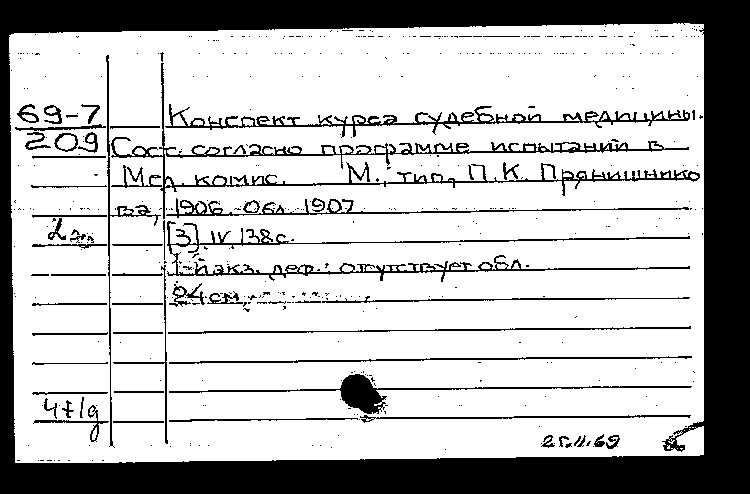 69-7
209
Конспект курса судебной медицины.
Сост. согласно программе испытаний в
Мед. комис. М., тип. П.К. Прянишнико
ва, 1906. Обл. 1907.
[3], IV, 138 с.
1-й экз. деф.: отсутствует обл.
24 см
25.II.69